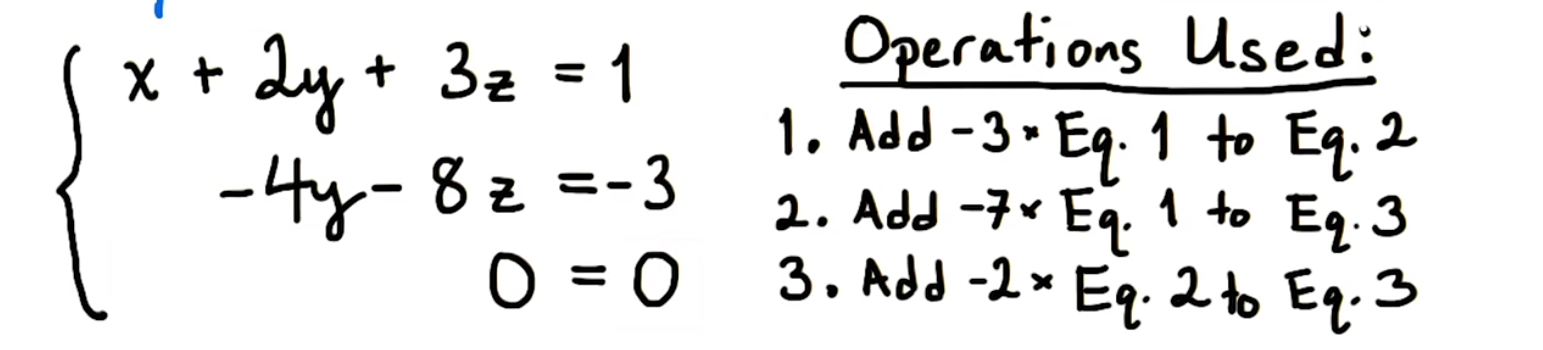 x + 2y + 3z = 1
-4y - 8z = -3
0 = 0
Operations Used:
1. Add -3 × Eq. 1 to Eq. 2
2. Add -7 × Eq. 1 to Eq. 3
3. Add -2 × Eq. 2 to Eq. 3